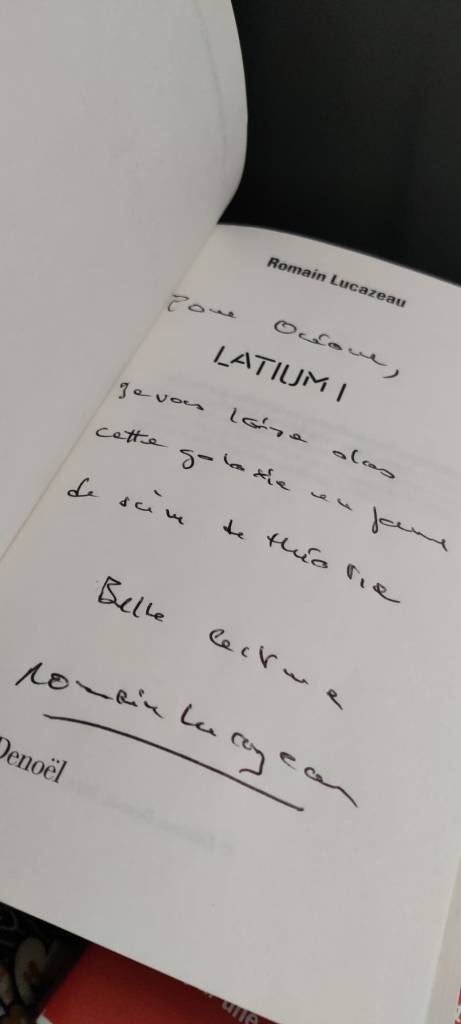 Romain Lucazeau
Pour Océane,
LATIUM I
Je vous laisse dans
cette galaxie en forme
de scène de théâtre
Belle lecture
Romain Lucazeau
Denoël
une